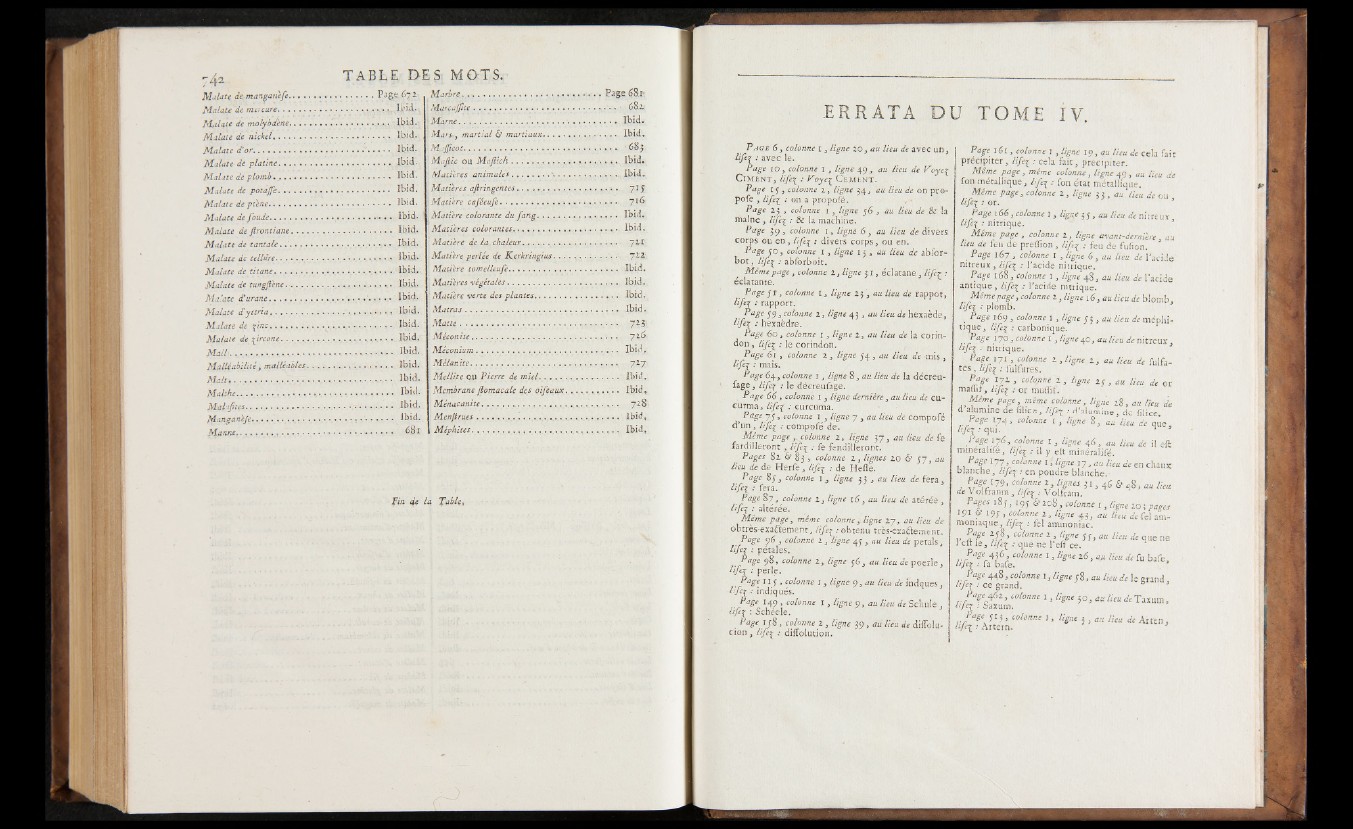 742 TABLE DES MOTS.
Malate de manganèſe................ Page 672
Malate de mercure........................ Ibid.
Malate de molybdène..................... Ibid.
Malate de nickel........................ Ibid.
Malate d'or............................ Ibid.
Malate de platine....................... Ibid.
Malate de plomb........................ Ibid.
Malate de potaſſe....................... Ibid.
Malate de ptène........................ Ibid.
Malate de ſoude........................ Ibid.
Malate de ſtrontiane..................... Ibid.
Malate de tantale....................... Ibid.
Malate de tellure....................... Ibid.
Malate de titane........................ Ibid.
Malate de tungſtène..................... Ibid.
Malate d'urane......................... Ibid.
Malate d'yttria......................... Ibid.
Malate de zinc......................... Ibid.
Malate de zircone....................... Ibid.
Mall................................ Ibid.
Malléabilité, malléables.................. Ibid.
Malt................................ Ibid.
Malthe.............................. Ibid.
Ibid.
Manganèſe........................... Ibid.
Manne.............................. 681
Marbre........................... Page 681
Marcaſſite........................... 682
Marne.............................. Ibid.
Mars, martial & martiaux............... Ibid.
Maſſicot............................. 683
Maſtic ou Maſtich..................... Ibid.
Matières animales..................... Ibid.
Matières aſtringentes................... 715
Matière caſéeuſe....................... 716
Matière colorante du ſang................ Ibid.
Matières colorantes.................... Ibid.
Matière de la chaleur................... 721
Matière perlée de Kerkringius............ 722
Matière tomelleuſe..................... Ibid.
Matières végétales..................... Ibid.
Matière verte des plantes................ Ibid.
Matras.............................. Ibid.
Matte............................... 723
Méconite............................ 726
Méconium........................... Ibid.
Mélanite............................ 727
Mellite ou Pierre de miel................ Ibid.
Membrane ſtomacale des oiſeaux.......... Ibid.
Ménacanite.......................... 728
Menſtrues........................... Ibid.
Méphites............................ Ibid.
Fin de la Table.
ERRATA DU TOME IV.
PAGE 6, colonne 1, ligne 20, au lieu de avec un,
liſez : avec le.
Page 10, colonne 1, ligne 49, au lieu de Voyez
CIMENT, liſez : Voyez CEMENT.
Page 15, colonne 2, ligne 34, au lieu de on pro-
poſe, liſez : on a propoſé.
Page 23, colonne 1, ligne 56, au lieu de & la
maine, liſez : & la machine.
Page 39, colonne 1, ligne 6, au lieu de divers
corps ou en, liſez : divers corps, ou en.
Page 50, colonne 1, ligne 13, au lieu de abſor-
bot, liſez : abſorboit.
Même page, colonne 2, ligne 31, éclatane, liſez :
éclatante.
Page 51, colonne 1, ligne 23, au lieu de rappot,
liſez : rapport.
Page 59, colonne 2, ligne 43, au lieu de hexaède,
liſez : hexaèdre.
Page 60, colonne 1, ligne 2, au lieu de la corin-
don, liſez : le corindon.
Page 61, colonne 2, ligne 54, au lieu de mis,
liſez : mais.
Page 64, colonne 1, ligne 8, au lieu de la décreu-
ſage, liſez : le décreuſage.
Page 66, colonne 1, ligne dernière, au lieu de cu-
curma, liſez : curcuma.
Page 75, colonne 1, ligne 7, au lieu de compoſé
d'un, liſez : compoſé de.
Même page, colonne 2, ligne 37, au lieu de ſe
fardilleront, liſez : ſe fendilleront.
Pages 82 & 83, colonne 2, lignes 20 & 57, au
lieu de de Herſe, liſez : de Heſſe.
Page 85, colonne 1, ligne 33, au lieu de fera,
liſez : ſera.
Page 87, colonne 2, ligne 16, au lieu de atérée,
liſez : altérée.
Même page, même colonne, ligne 27, au lieu de
obtrès-exactement, liſez : obtenu très-exactement.
Page 96, colonne 2, ligne 45, au lieu de petals,
liſez : pétales.
Page 98, colonne 2, ligne 56, au lieu de poerle,
liſez : perle.
Page 115, colonne 1, ligne 9, au lieu de indques,
liſez : indiqués.
Page 149, colonne 1, ligne 9, au lieu de Schule,
liſez : Schéele.
Page 158, colonne 2, ligne 39, au lieu de diſſolu-
cion, liſez : diſſolution.
Page 161, colonne 1, ligne 19, au lieu de cela fait
précipiter, liſez : cela fait, précipiter.
Même page, même colonne, ligne 49, au lieu de
ſon métallique, liſez : ſon état métallique.
Même page, colonne 2, ligne 33, au lieu de ou,
liſez : or.
Page 166, colonne 2, ligne 35, au lieu de nitreux,
liſez : nitrique.
Même page, colonne 2, ligne avant-dernière, au
lieu de feu de preſſion, liſez : feu de fuſion.
Page 167, colonne 1, ligne 6, au lieu de l'acide
nitreux, liſez : l'acide nitrique.
Page 168, colonne 1, ligne 48, au lieu de l'acide
antique, liſez : l'acide nitrique.
Même page, colonne 2, ligne 16, au lieu de blomb,
liſez : plomb.
Page 169, colonne 1, ligne 55, au lieu de méphi-
tique, liſez : carbonique.
Page 170, colonne 1, ligne 40, au lieu de nitreux,
liſez : nitrique.
Page 171, colonne 2, ligne 2, au lieu de ſulfa-
tes, liſez : ſulfures.
Page 172, colonne 2, ligne 25, au lieu de or
maſſif, liſez : or muſſif.
Même page, même colonne, ligne 28, au lieu de
d'alumine de ſilice, liſez : d'alumine, de ſilice.
Page 174, colonne 1, ligne 8, au lieu de que,
liſez : qui.
Page 176, colonne 1, ligne 46, au lieu de il eſt
minéraliſé, liſez : il y eſt minéraliſé.
Page 177, colonne 1, ligne 17, au lieu de en chaux
blanche, liſez : en poudre blanche.
Page 179, colonne 2, lignes 31, 46 & 48, au lieu
de Volfranm, liſez : Volfram.
Pages 185, 195 & 208, colonne 1, ligne 20; pages
191 & 195, colonne 2, ligne 43, au lieu de ſel am-
moniaque, liſez : ſel ammoniac.
Page 258, colonne 2, ligne 55, au lieu de que ne
l'eſt ſe, liſez : que ne l'eſt ce.
Page 436, colonne 1, ligne 26, au lieu de ſu baſe,
liſez : ſa baſe.
Page 448, colonne 1, ligne 58, au lieu de le grand,
liſez : ce grand.
Page 462, colonne 1, ligne 50, au lieu de Taxum,
liſez : Saxum.
Page 513, colonne 1, ligne 3, au lieu de Arten,
liſez : Artern.